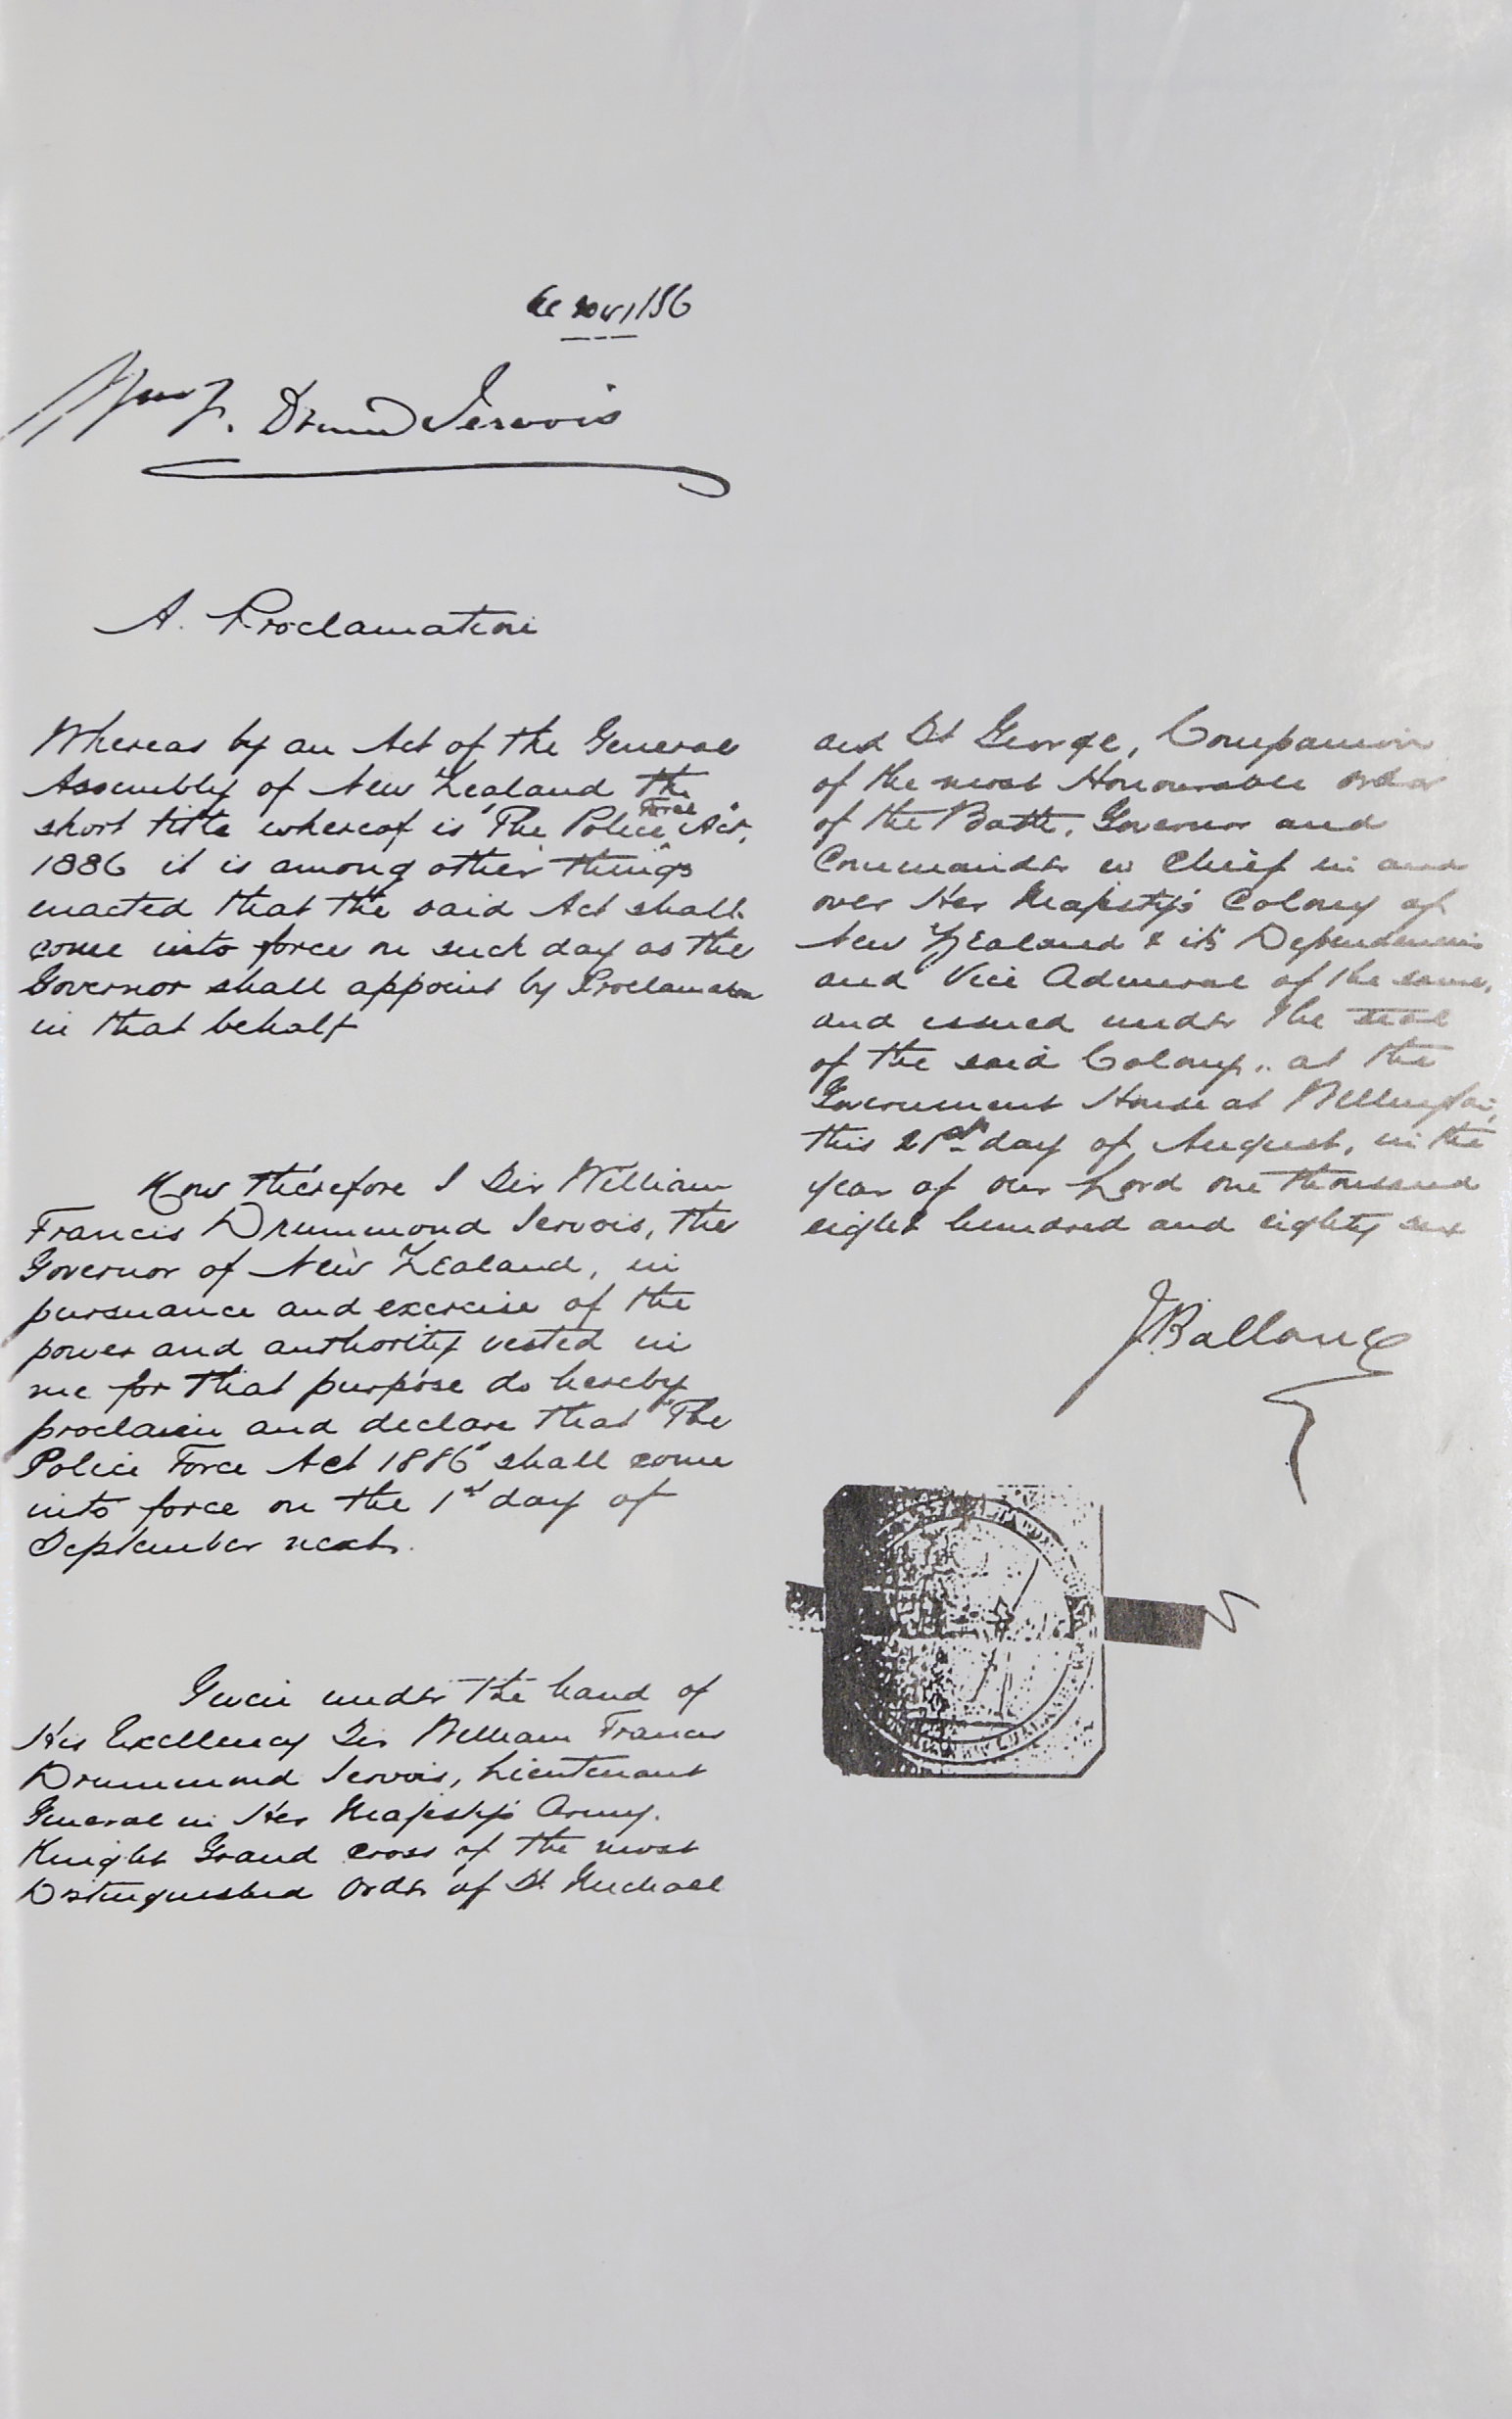 Wm F. Drumd Jervois
A. Proclamation
Whereas by an Act of the General
Assembly of New Zealand the
short title whereof is "The Police Force Act,
1886" it is among other things
enacted that the said Act shall
come into force on such day as the
Governor shall appoint by Proclamation
in that behalf
Now therefore I Sir William
Francis Drummond Jervois, the
Governor of New Zealand, in
pursuance and exercise of the
power and authority vested in
me for that purpose do hereby
proclaim and declare that "The
Police Force Act 1886" shall come
into force on the 1st day of
September next.
Given under the hand of
His Excellency Sir William Francis
Drummond Jervois, Lieutenant
General in Her Majesty's Army.
Knight Grand Cross of the most
Distinguished Order of St Michael
and St George, Companion
of the most Honourable order
of the Bath, Governor and
Commander in Chief in and
over Her Majesty's Colony of
New Zealand & its Dependencies
and Vice Admiral of the same,
and issued under the seal
of the said Colony, at the
Government House at Wellington,
this 21st day of August, in the
year of our Lord one thousand
eight hundred and eighty six
J Ballance